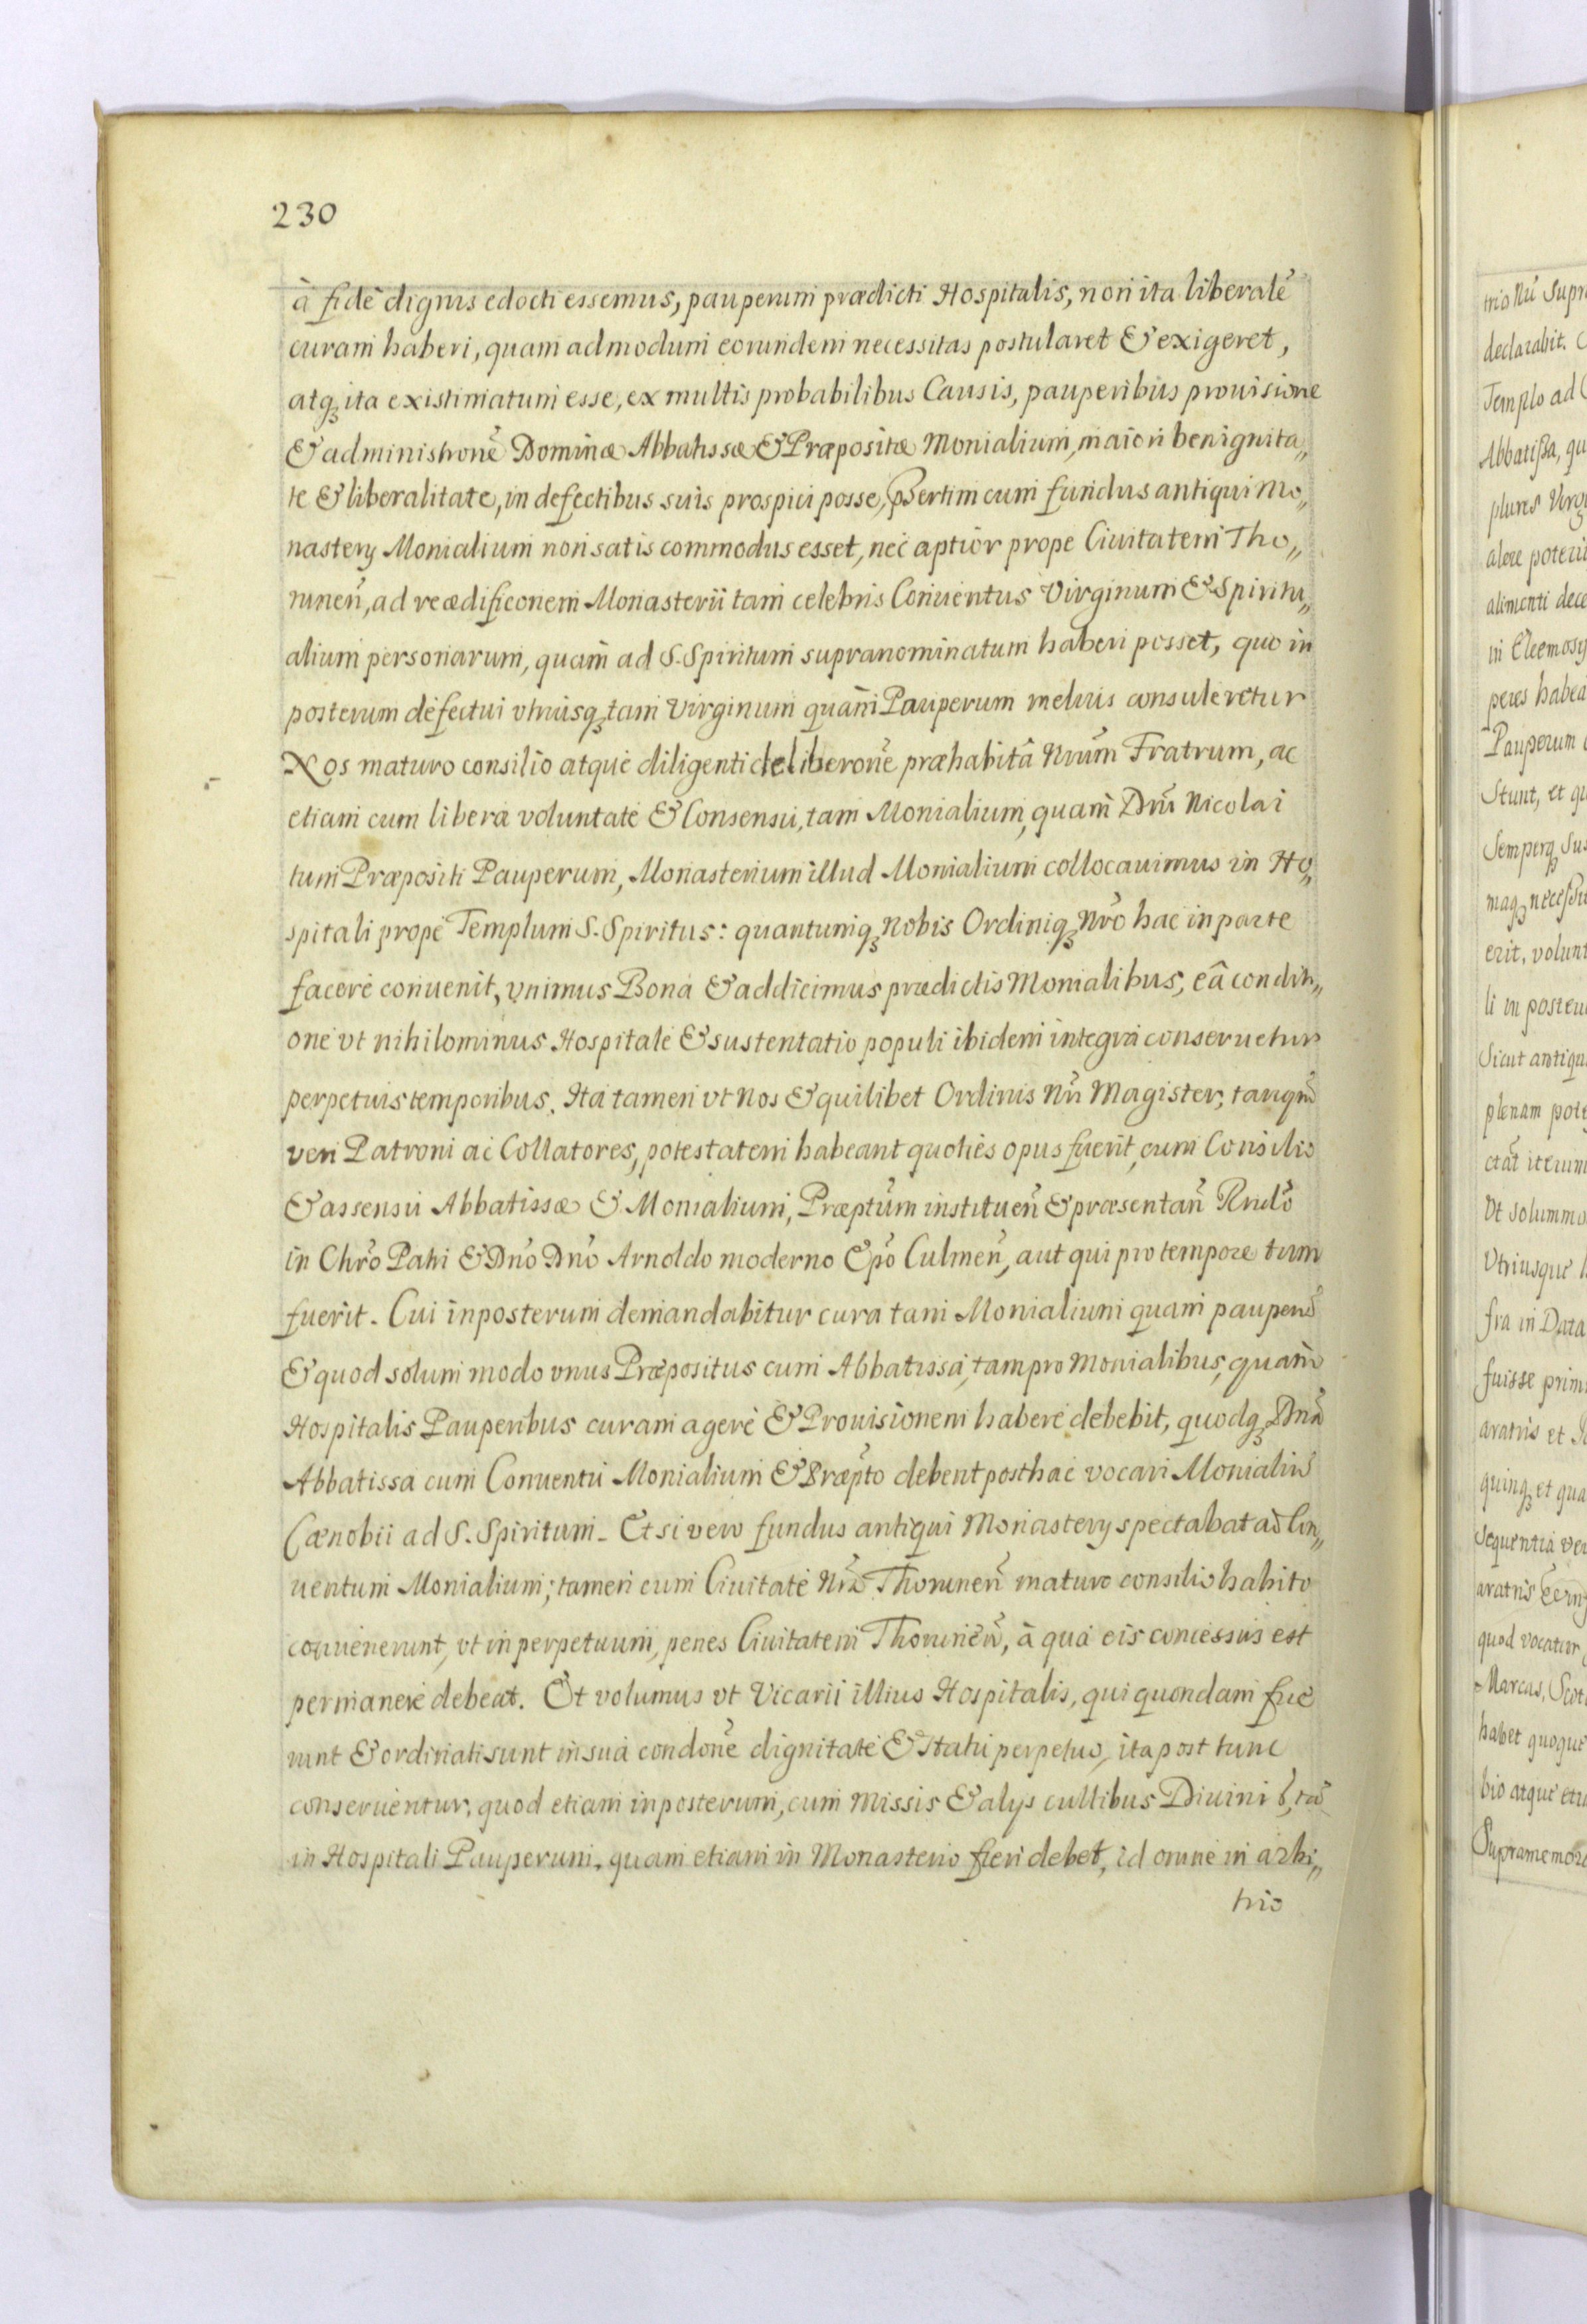 230
à fide dignis edocti essemus, pauperum prædicti Hospitalis, non ita liberalẽ
curam haberi, quam admodum eorundem necessitas postularet & exigeret,
atq₃ ita existimatum esse, ex multis probabilibus Causis, pauperibus prouisione
& administronẽ Dominæ Abbatissæ & Præpositæ Monialium, maiori benignita„
te & liberalitate, in defectibus suis prospici posse, p̃sertim cum fundus antiqui Mo„
nastery Monialium non satis commodus esset, nec aptior prope Ciuitatem Tho„
runeñ, ad reædificonem Monasterii tam celebris Conuentus Virginum & Spiritu„
alium personarum, quam̀ ad S. Spiritum supranominatum haberi posset, quo in
posterum defectui vtriusq₃ tam Virginum quam̀ Pauperum melius consuleretur
Nos maturo consilio atque diligenti deliberonẽ præhabitâ Nrũm Fratrum, ac
etiam cum libera voluntate & Consensu, tam Monialium, quam̀ Dñi Nicolai
tum Præpositi Pauperum, Monasterium illud Monialium collocauimus in Ho„
spitali prope Templum S. Spiritus: quantumq₃ Nobis Ordiniq₃ Nrõ hac in parte
facere conuenit, vnimus Bona & addicimus prædictis Monialibus, eâ conditi„
one vt nihilominus Hospitale & sustentatio populi ibidem integra conseruetur
perpetuis temporibus. Ita tamen vt Nos & quilibet Ordinis Nrĩ Magister, tanqm̃
veri Patroni ac Collatores, potestatem habeant quoties opus fuerit, cum Consilio
& assensu Abbatissæ & Monialium, Præptũm instituen̄ & præsentan̄ Rndõ
in Chrõ Patri & Dnõ Dnõ Arnoldo moderno Epõ Culmeñ, aut qui pro tempore tum
fuerit. Cui in posterum demandabitur cura tam Monialium quam pauperũ
& quod solum modo vnus Præpositus cum Abbatissa, tam pro Monialibus, quam̀
Hospitalis Pauperibus curam agere & Prouisionem habere debebit, quodq₃ Dnã
Abbatissa cum Conuentu Monialium & Præptõ debent posthac vocari Monialiũ
Cænobii ad S. Spiritum. Etsi vero fundus antiqui Monastery spectabat ad Con„
uentum Monialium; tamen cum Ciuitate Nrã Thoruneñ maturo consilio habito
conuenerunt, vt in perpetuum, penes Ciuitatem Thoruneñ, à qua eis concessus est
permanere debeat. Et volumus vt Vicarii illius Hospitalis, qui quondam fue
runt & ordinati sunt in sua condonẽ dignitate & statu perpetuo, ita post tunc
conseruentur, quod etiam in posterum, cum Missis & alys cultibus Diuinib, tam̃
in Hospitali Pauperum, quam etiam in Monasterio fieri debet, id omne in arbi„
trio